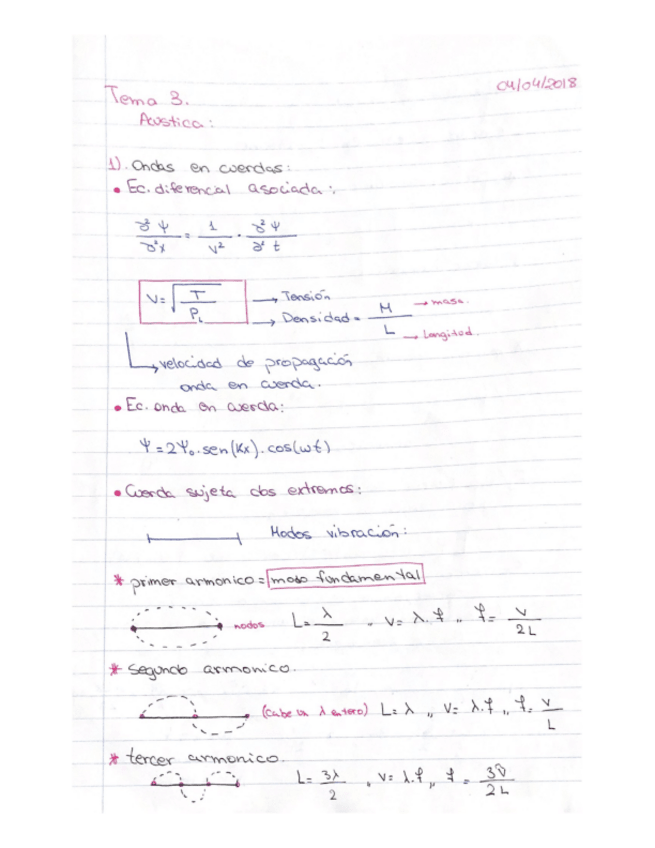 04/04/2018
Tema 3.
Acustica:
1). Ondas en cuerdas:
• Ec. diferencial asociada:
∂²Ψ/∂²x = 1/V² · ∂²Ψ/∂²t
V = √(T/ρL) → Tensión
→ Densidad = M/L → masa.
→ Longitud.
→ velocidad de propagación
onda en cuerda.
• Ec. onda en cuerda:
Ψ = 2Ψ₀ · sen(Kx) · cos(ωt)
• Cuerda sujeta dos extremos:
Modos vibración:
* primer armonico = modo fundamental
nodos L = λ/2 „ V = λ.f „ f = V/2L
* segundo armonico.
(cabe un λ entero) L = λ „ V = λ.f „ f = V/L
* tercer armonico.
L = 3λ/2 „ V = λ.f „ f = 3V/2L